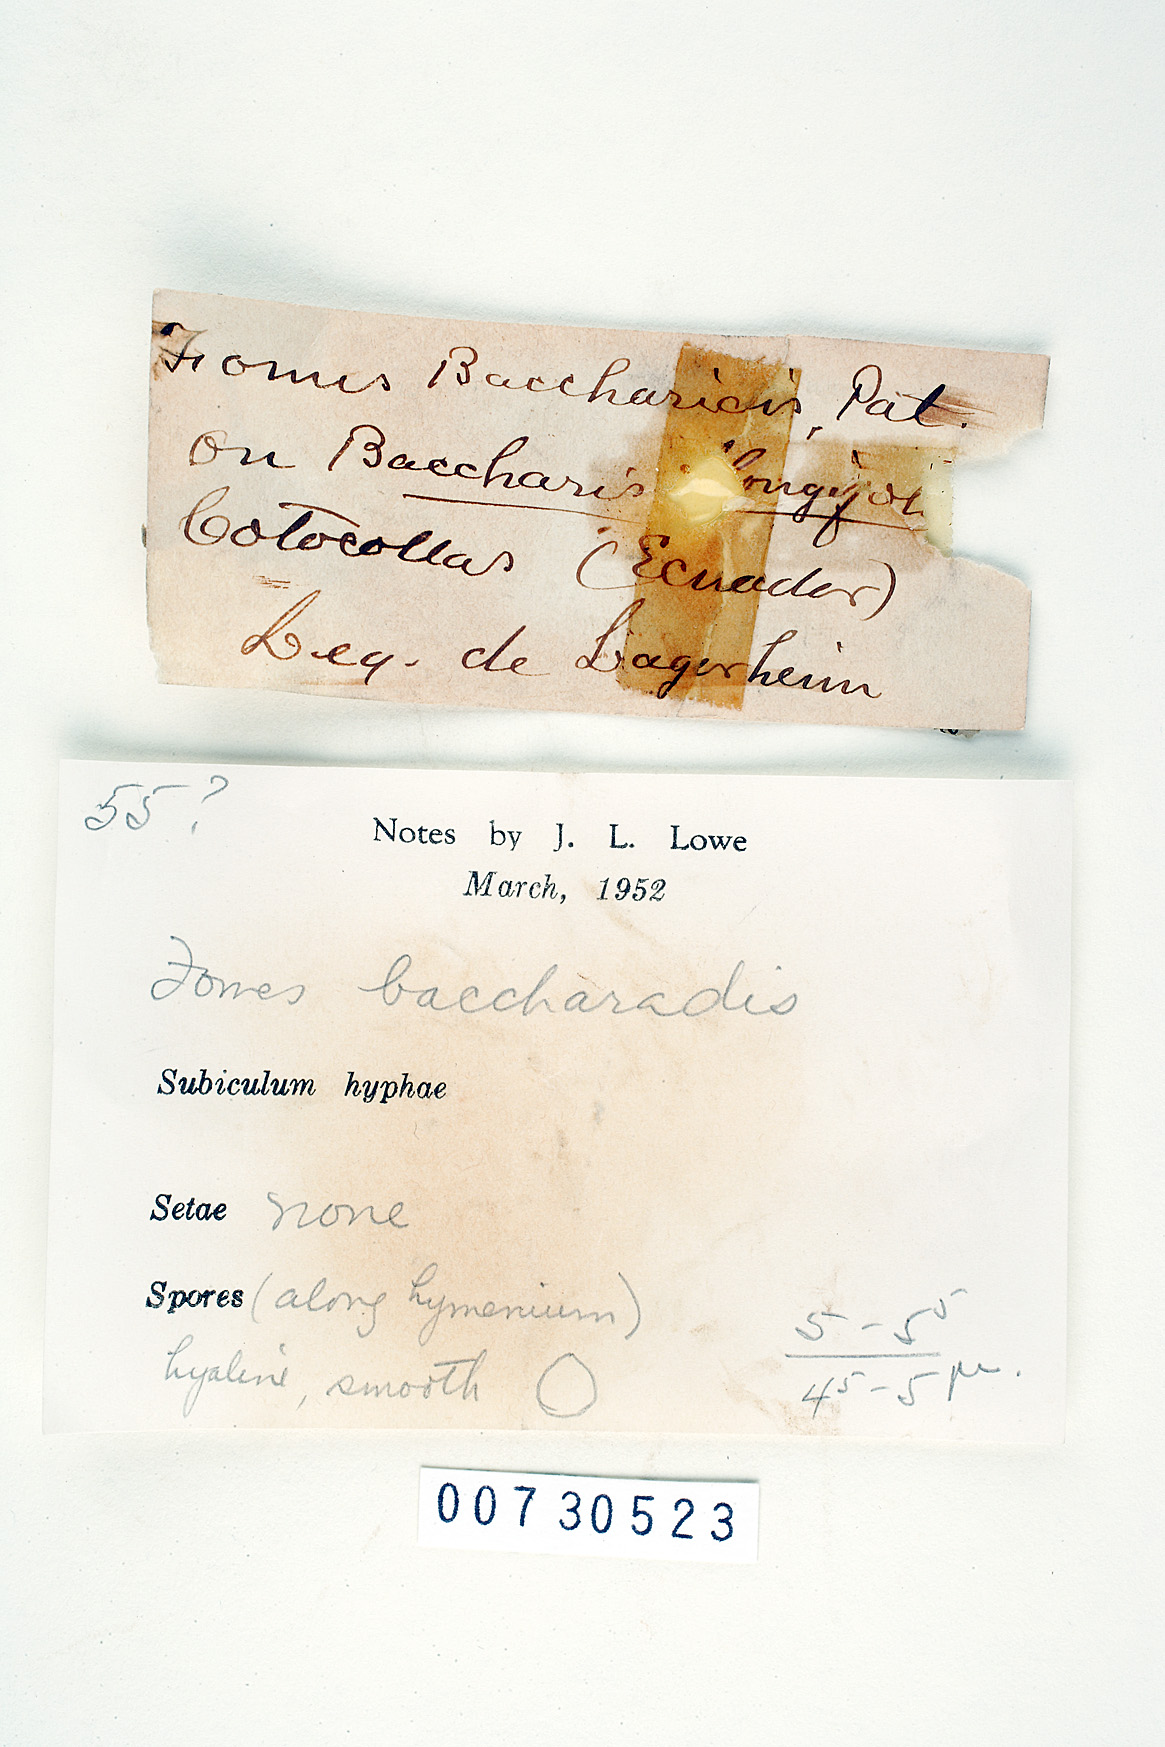 Fomes Baccharidis, Pat.
on Baccharis
Cotocollas (Ecuador)
Leg. de Lagerheim
55?
Notes by J. L. Lowe
March, 1952
Fomes baccharadis
Subiculum hyphae
Setae none
Spores (along hymenium)
hyaline, smooth
5 - 5⁵
4⁵ - 5 µ.
00730523